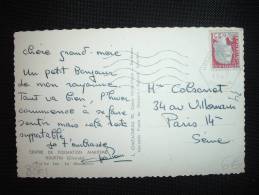 chère grand-mère
Un petit Bonjour
de mon royaume
Tout va bien, l'hiver
commence à se faire
sentir mais cela reste
supportable
je t'embrasse
Mme Colsonet
34 rue Villemain
Paris 14
Seine
CENTRE DE FORMATION MARITIME
HOURTIN (Gironde)